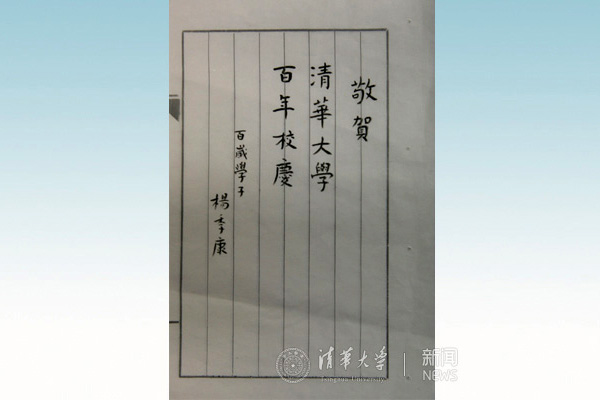 敬賀
清華大學
百年校慶
百歲學子
楊季康
清华大学
Tsinghua University
新闻
NEWS